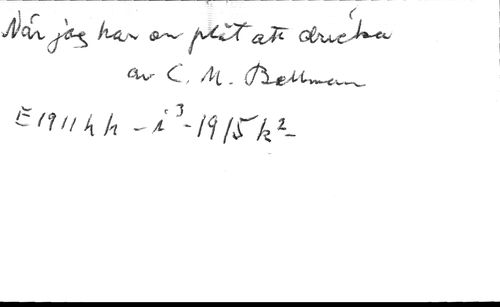 När jag har en plåt att dricka
av C. M. Bellman
E 1911 h h - i³ - 1915 k² -